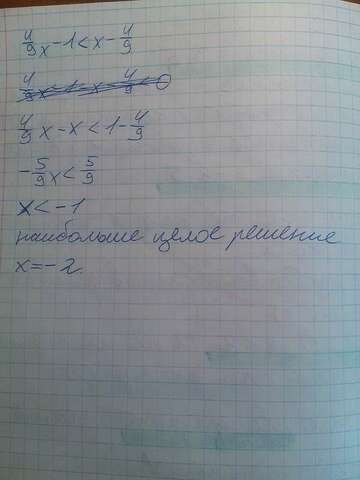 4/9 x - 1 < x - 4/9
4/9 x - x < 1 - 4/9
- 5/9 x < 5/9
x < - 1
наибольше целое решение
x = - 2